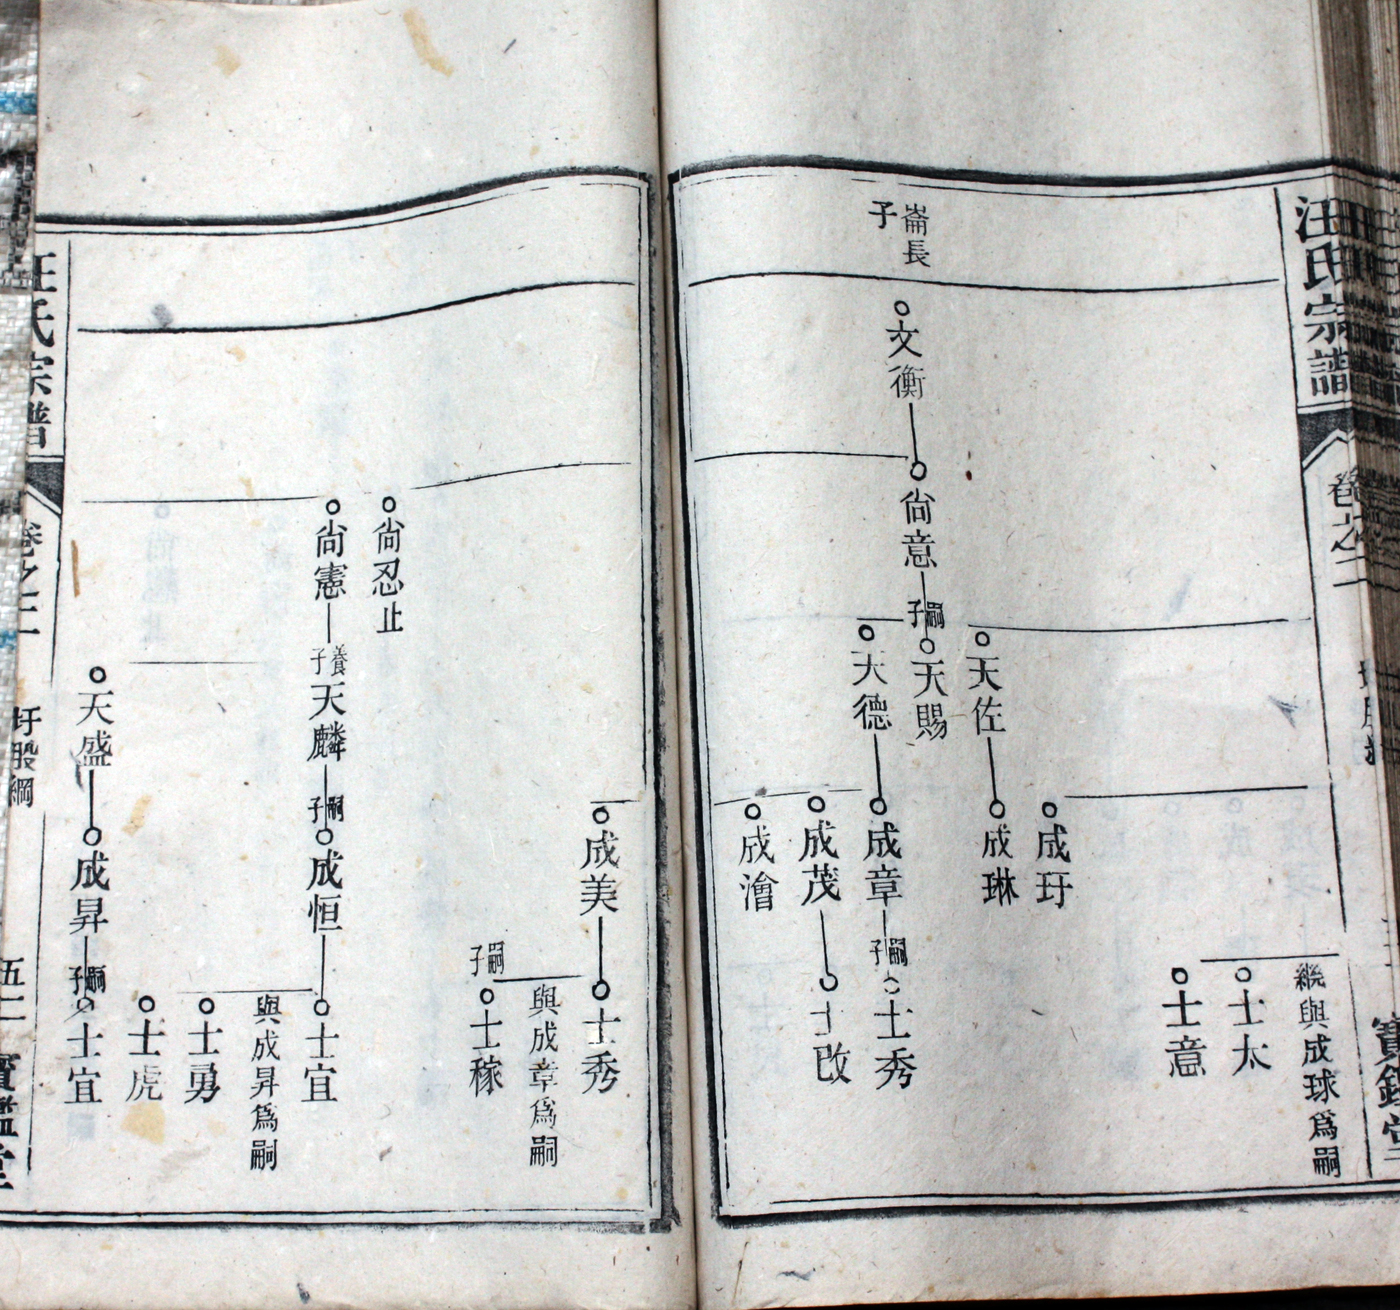 汪氏宗譜
卷之二
寶鑑堂
繼與成球爲嗣
士太
士意
成玗
天佐
成琳
崙長
子
文衡
尙意
嗣子
天賜
天德
成章
嗣子
士秀
成茂
士改
成澮
成美
士秀
與成章爲嗣
嗣子
士稼
尙忍止
尙憲
養子
天麟
嗣子
成恒
士宜
與成昇爲嗣
士勇
士虎
天盛
成昇
嗣子
士宜
汪氏宗譜
卷之二
玗股綱
伍二
寶鑑堂